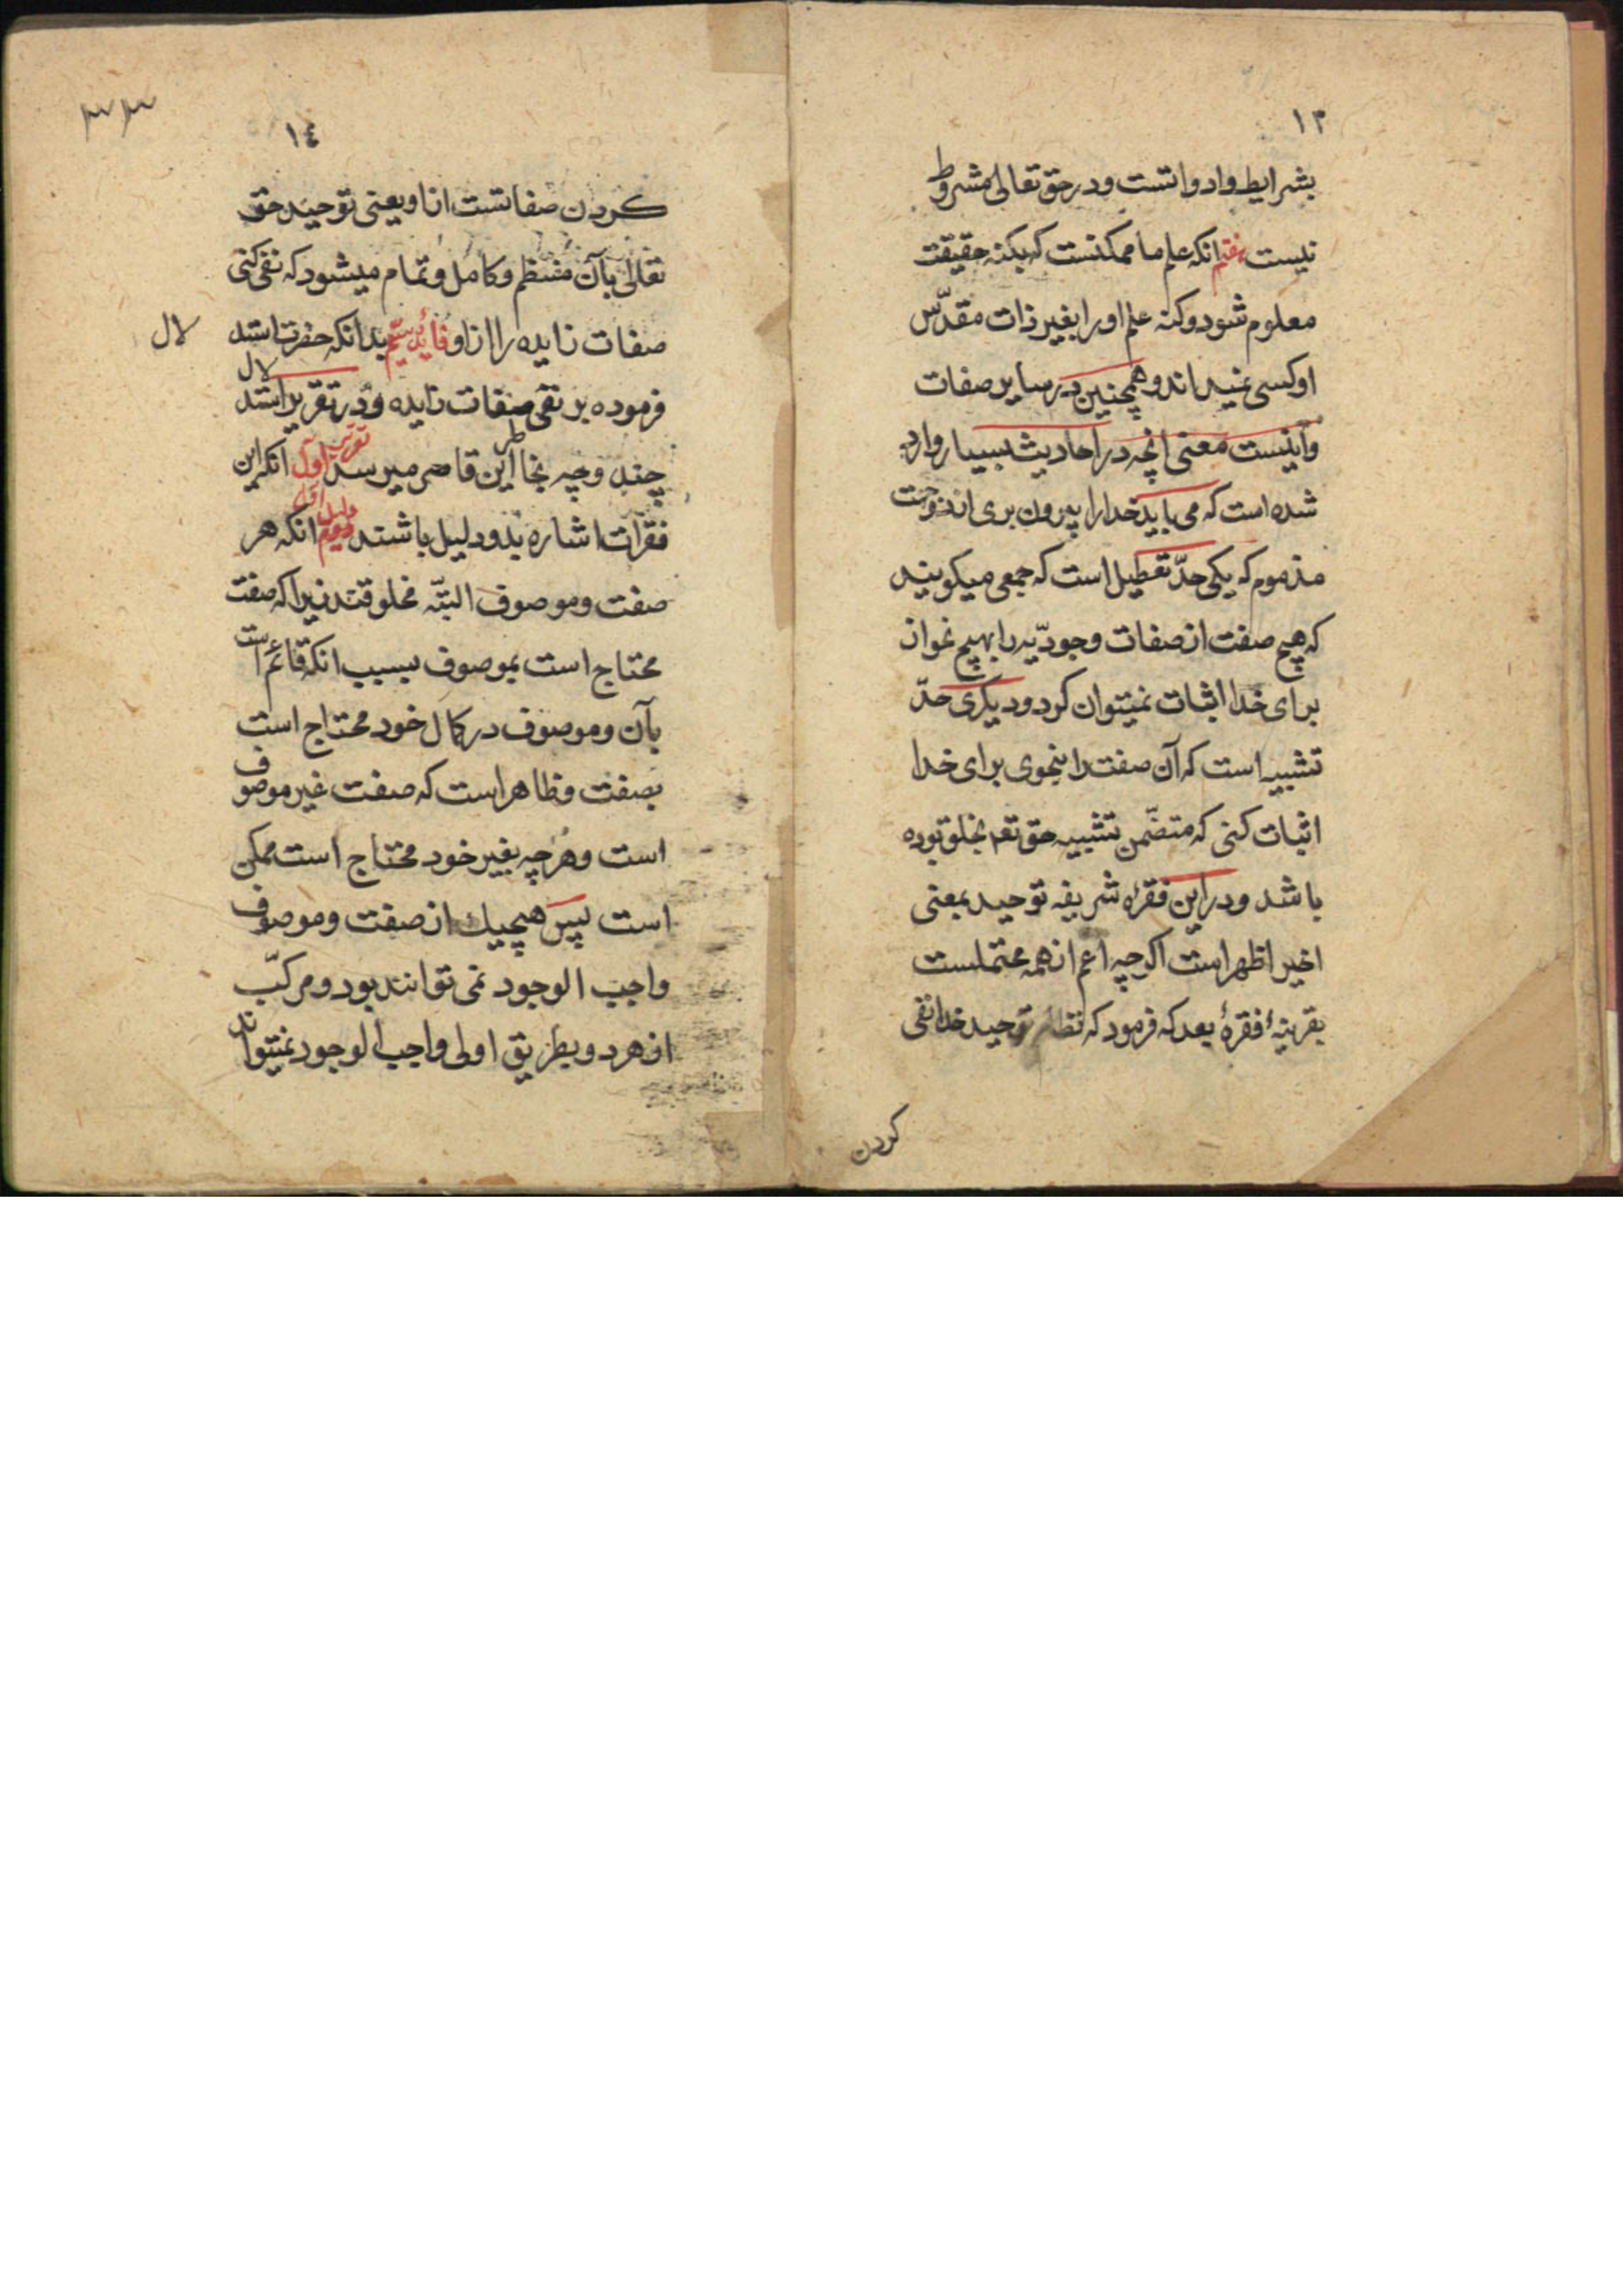 ١٣
بشرایط وادواتست ودر حق تعالی مشروط
نیست هفتم انکه علم ما ممکنست که بکنه حقیقت
معلوم شود وکنه علم اورا بغیر ذات مقدّس
اوکسی نمیداند وهمچنین در سایر صفات
واینست معنی انچه در احادیث بسیار وارد
شده است که می باید خدا را بیرون بری از دو جهت
مذموم که یکی حدّ تعطیل است که جمعی میکویند
که هیچ صفت از صفات وجودیّه را بهیچ نحو از
برای خدا اثبات نمیتوان کرد ودیکری حدّ
تشبیه است که آن صفت را بنحوی برای خدا
اثبات کنی که متضّمن تشبیه حق تعـ بخلق بوده
باشد ودر این فقرهٔ شریفه توحید بمعنی
اخیر اظهر است اکرچه اعم از همه محتملست
بقرینهٔ فقرهٔ بعد که فرمود که نظام توحید خدا نفی
کردن
١٤
٣٣
کردن صفاتست از او یعنی توحید حق
تعالی بآن منتظم وکامل وتمام میشود که نفی کنی
صفات زایده را از او فایدۀ سیّم بدانکه حضرت استد
لال
فرموده بر نفی صفات زایده ودر تقریر استد
لال
چند وجه بخاطر این قاصر میرسد تقریر اوّل انکه این
فقرات اشاره بدو دلیل باشد دلیل اوّل انکه هر
صفت وموصوف البتّه مخلوقند زیرا که صفت
محتاج است بموصوف بسبب انکه قائم است
بآن وموصوف در کمال خود محتاج است
بصفت وظاهر است که صفت غیر موصوف
است وهرچه بغیر خود محتاج است ممکن
است پس هیچیك از صفت وموصوف
واجب الوجود نمی توانند بود ومرکّب
از هر دو بطریق اولی واجب الوجود نمیتواند